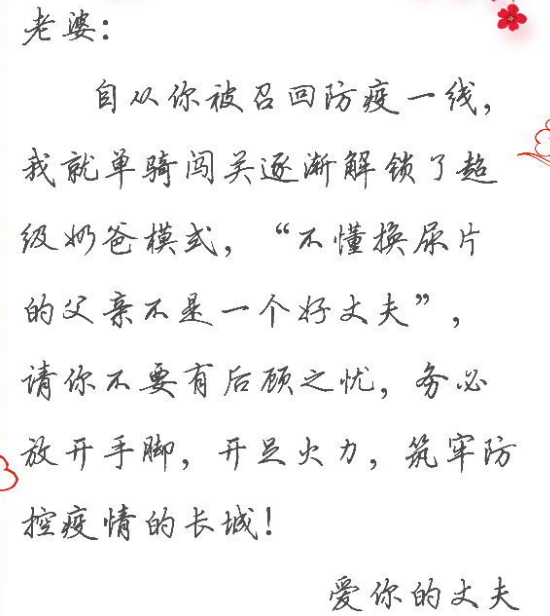 老婆：
自从你被召回防疫一线，
我就单骑闯关逐渐解锁了超
级奶爸模式，“不懂换尿片
的父亲不是一个好丈夫”，
请你不要有后顾之忧，务必
放开手脚，开足火力，筑牢防
控疫情的长城！
爱你的丈夫